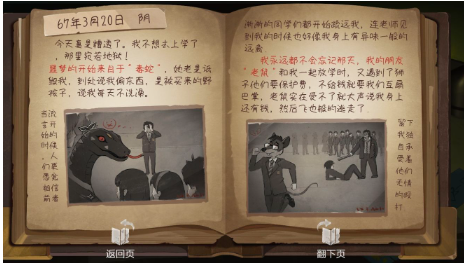 67年3月20日 阴
今天真是糟透了。我不想去上学了
，那里宛若地狱！
噩梦的开始来自于"毒蛇"，她老是说
谎，到处说我偷东西，是被买来的野
孩子，说我每天不洗澡。
谎言开始的时候，人们总是愿意相信前者
渐渐的同学们都开始疏远我，连老师见
到我的时候也好像我身上有异味一般的
远离
我永远都不会忘记那天，我的朋友
"老鼠"和我一起放学时，又遇到了狮
子他们要保护费，不给钱就要我们互扇
巴掌，老鼠实在受不了就大声说我身上
还有钱，然后飞也般的逃走了
留下我独自承受着他们无情的殴打
返回页
翻下页